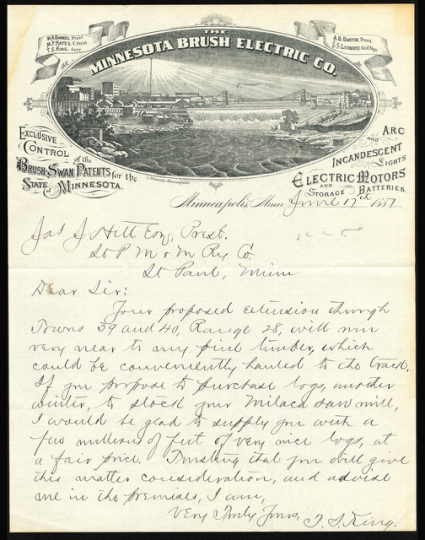 W.A. Barnes, Presd.
T.S. King, Secy.
A.H. Barton, Treas.
S.S. Leonard, Gen'l Mgr.
THE
MINNESOTA BRUSH ELECTRIC CO.
EXCLUSIVE CONTROL of the BRUSH-SWAN PATENTS for the STATE OF MINNESOTA.
ARC AND INCANDESCENT LIGHTS
ELECTRIC MOTORS AND STORAGE BATTERIES.
Minneapolis, Minn. June 17th 1887
Jas J Hill Esq, Prest.
St P M & M Ry Co.
St Paul, Minn
Dear Sir:
Your proposed extension through
Towns 39 and 40, Range 28, will run
very near to my pine timber, which
could be conveniently hauled to the track.
If you propose to purchase logs, another
winter, to stock your Milaca saw mill,
I would be glad to supply you with a
few millions of feet of very nice logs, at
a fair price. Trusting that you will give
this matter consideration, and advise
me in the premises, I am,
Very Truly Yours, T. S. King.